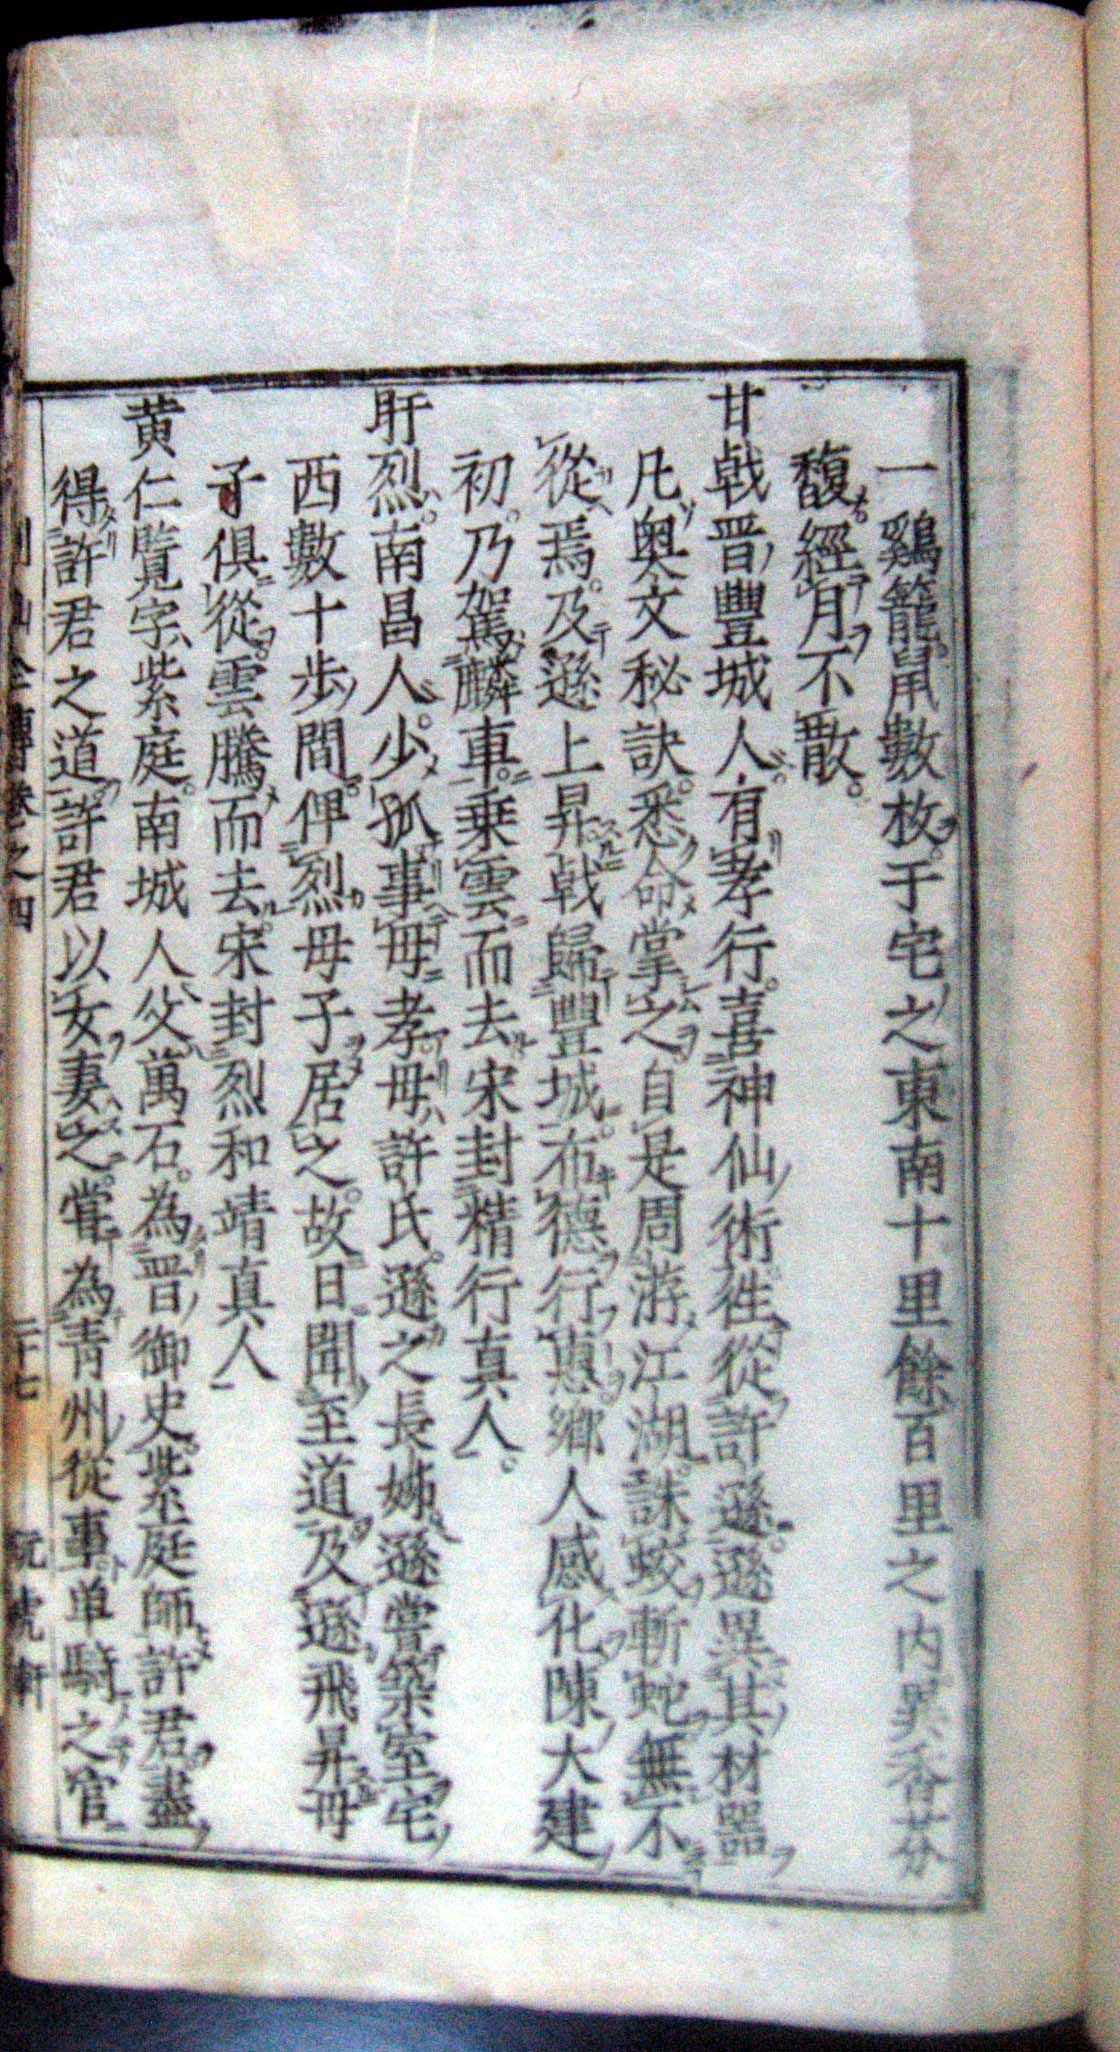 一鷄籠鼠數枚于宅之東南十里餘百里之内異香芬
馥經月不散
甘戟晋豐城人有孝行喜神仙術徃從許遜遜異其材器
凡奥文秘訣悉命掌之自是周游江湖誅蛟斬蛇無不
從焉及遜上昇戟歸豐城布德行惠鄉人感化陳大建
初乃駕麟車乗雲而去宋封精行真人
盱烈南昌人少孤事母孝母許氏遜之長姊遜嘗築室宅
西數十步間俾烈母子居之故日聞至道及遜飛昇母
子俱從雲騰而去宋封烈和靖真人
黄仁覧字紫庭南城人父萬石為晋御史紫庭師許君盡
得許君之道許君以女妻之嘗為青州從事单騎之官
仝傳卷之四
二十七
玩乕軒